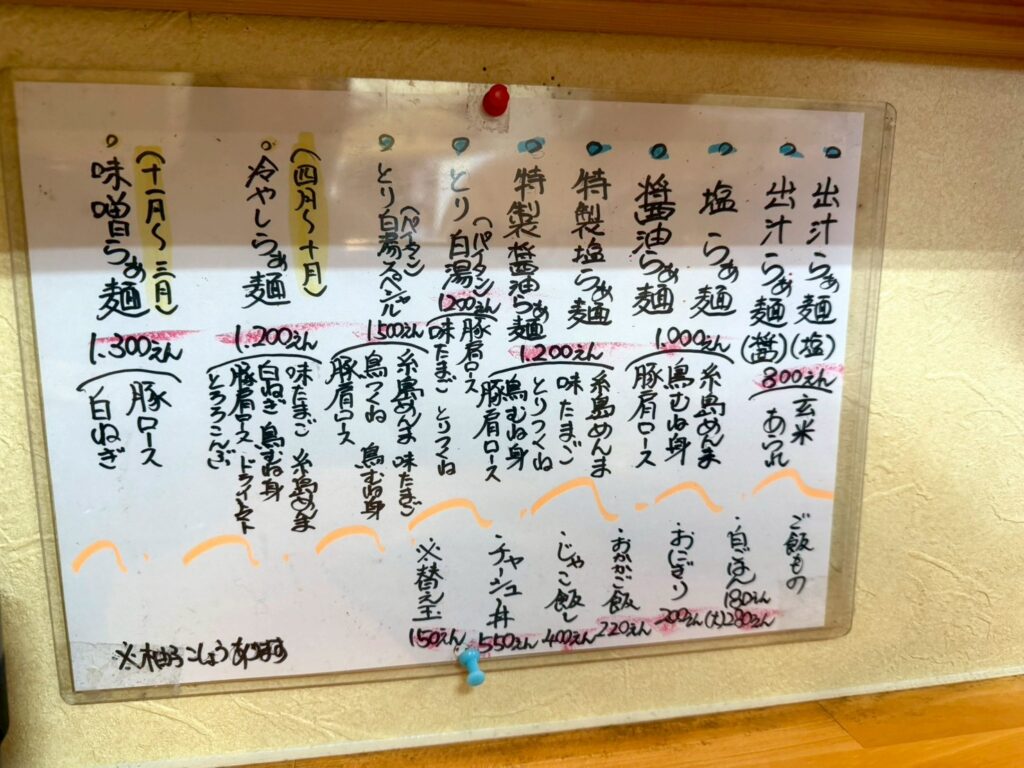 出汁らぁ麺(塩)
出汁らぁ麺(醤)
800えん
玄米
あられ
塩らぁ麺
醤油らぁ麺
1.000えん
糸島めんま
鳥むね身
豚肩ロース
特製塩らぁ麺
特製醤油らぁ麺
1.200えん
糸島めんま
味たまご
とりつくね
鳥むね身
豚肩ロース
とり白湯(パイタン)
1200えん
豚肩ロース
味たまご とりつくね
とり白湯スペシャル
(パイタン)
1500えん
糸島めんま 味たまご
鳥つくね 鳥むね身
豚肩ロース
(四月〜十月)
冷やしらぁ麺
1.200えん
味たまご 糸島めんま
白ねぎ 鳥むね身
豚肩ロース ドライトマト
とろろこんぶ
(十一月〜三月)
味噌らぁ麺
1.300えん
豚ロース
白ねぎ
ご飯もの
・白ごはん
180えん
(大)280えん
・おにぎり
200えん
・おかかご飯
220えん
・じゃこ飯し
400えん
・チャーシュー丼
550えん
※替え玉
150えん
※柚子こしょうあります